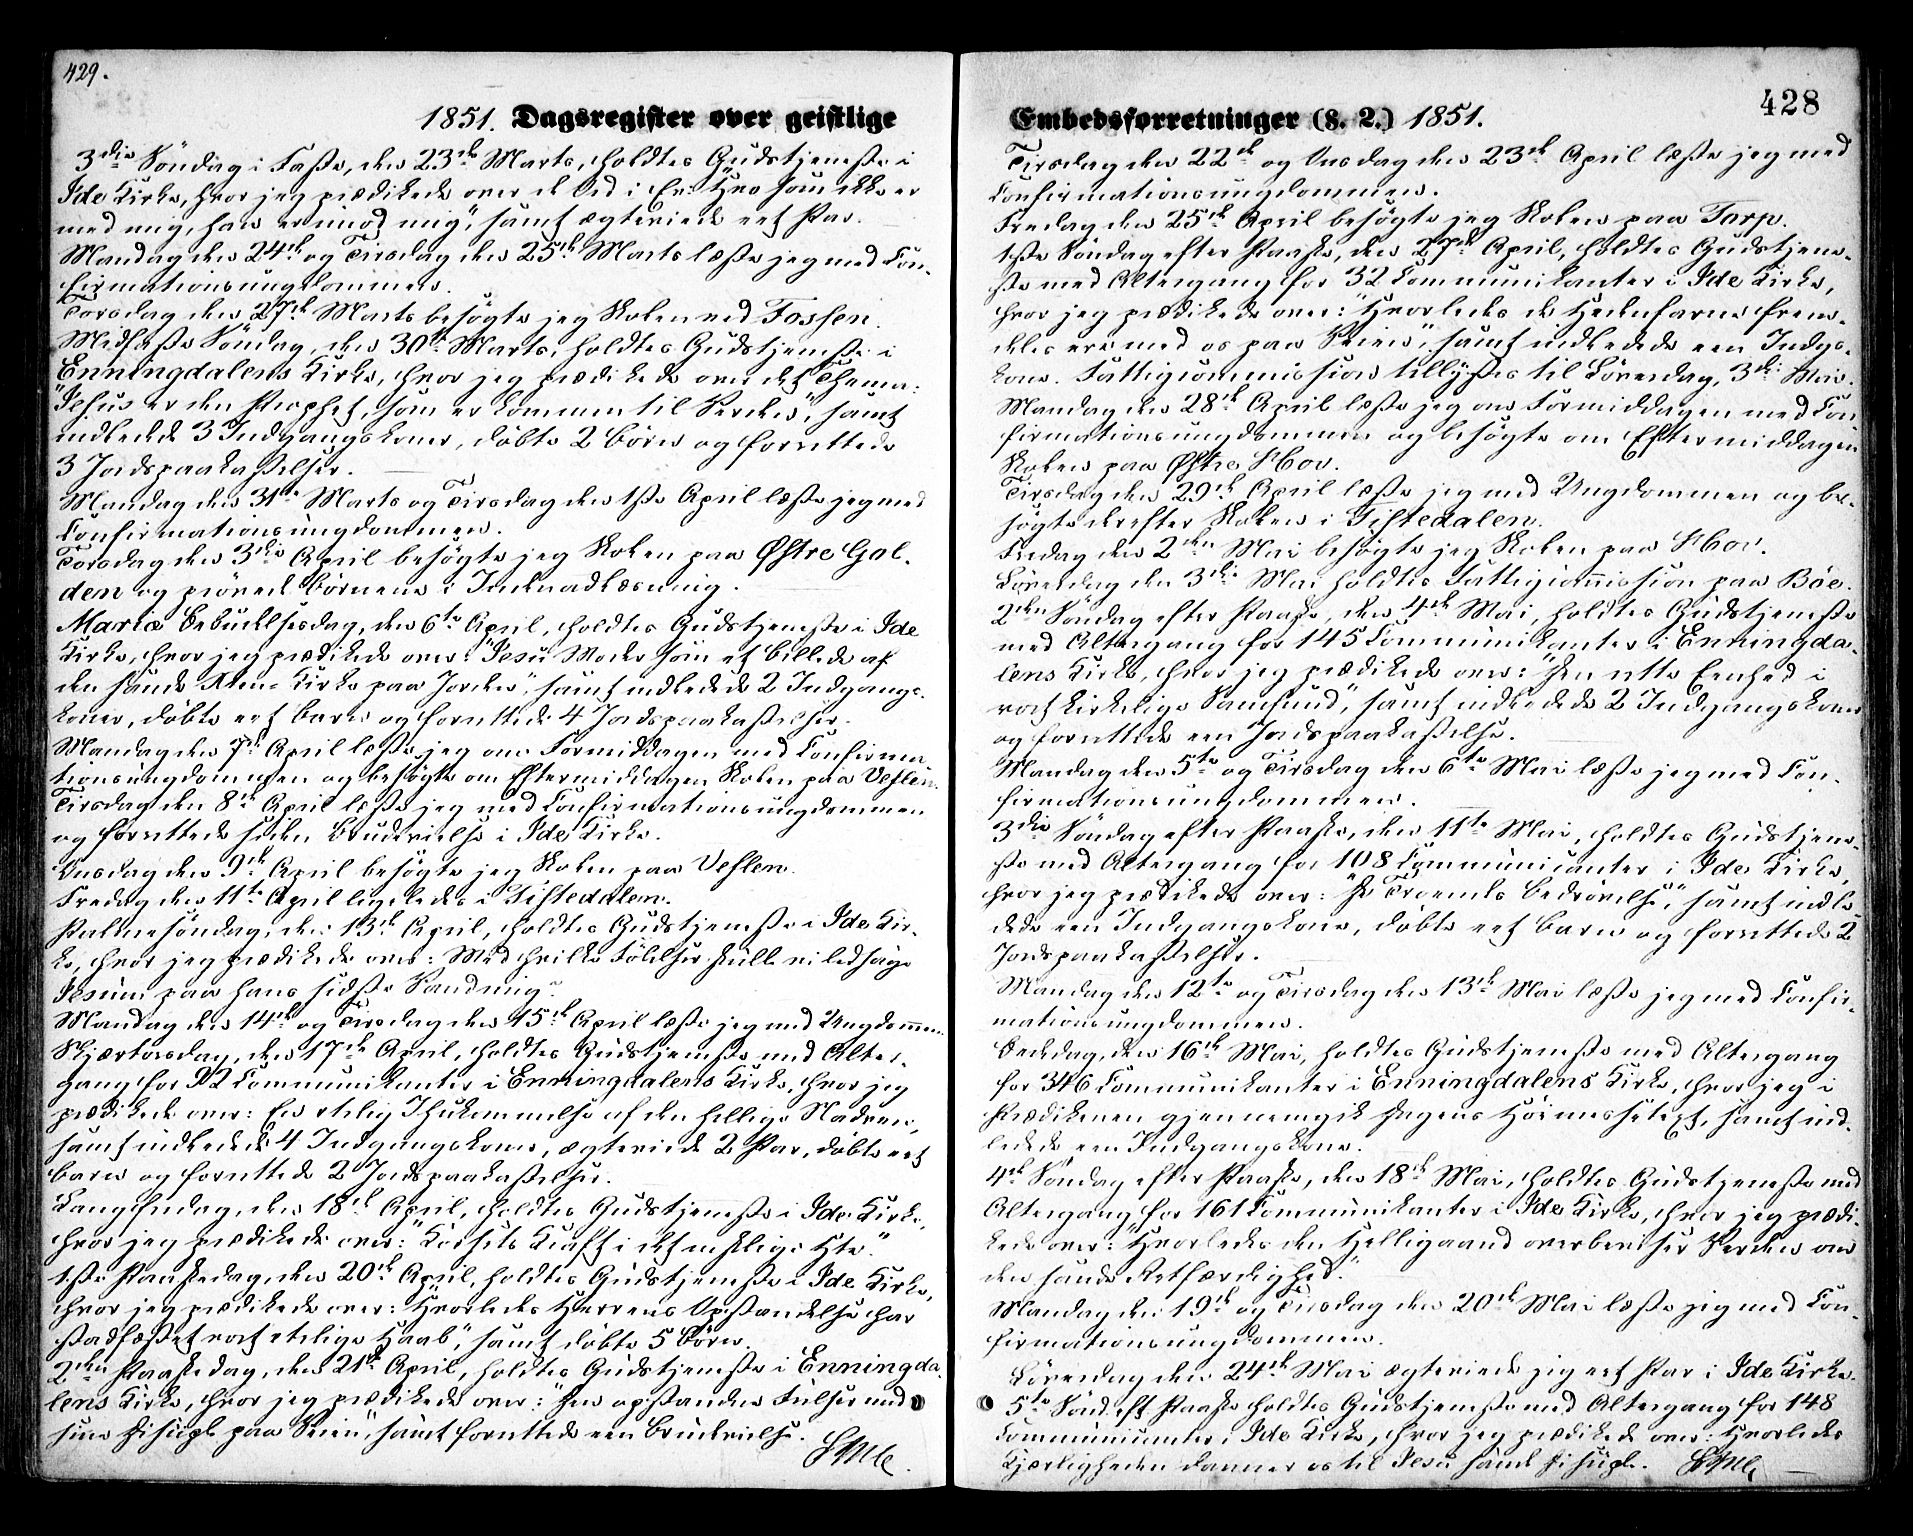 429.
1851. Dagsregister over geistlige
3die Søndag i Faste, den 23de Marts, holdtes Gudstjeneste i
Ide Kirke, hvor jeg prædikede over de Ord i Ev: "Hvo som ikke er
med mig, han er imod mig", samt ægteviede eet Par.
Mandag den 24de og Tirsdag den 25de Marts læste jeg med Con-
firmationsungdommen.
Torsdag den 27de Marts besøgte jeg Skolen ved Fossen.
Midfaste Søndag, den 30te Marts, holdtes Gudstjeneste i
Enningdalens Kirke, hvor jeg prædikede over det Thema:
"Jesus er den Prophet, som er kommen til Verden", samt
indledede 3 Indgangskoner, døbte 2 Børn og forrettede
3 Jordspaakastelser.
Mandag den 31te Marts og Tirsdag den 1ste April læste jeg med
Confirmationsungdommen.
Torsdag den 3die April besøgte jeg Skolen paa Østre Gal-
den og prøvede Børnene i Indenadlæsning.
Mariæ Bebudelsesdag, den 6te April, holdtes Gudstjeneste i Ide
Kirke, hvor jeg prædikede over: "Jesu Moder som et Billede af
den sande Xten-Kirke paa Jorden", samt indledede 2 Indgangs-
koner, døbte eet Barn og forrettede 4 Jordspaakastelser.
Mandag den 7de April læste jeg om Formiddagen med Confirma-
tionsungdommen og besøgte om Eftermiddagen Skolen paa Veslen.
Tirsdag den 8de April læste jeg med Confirmationsungdommen
og forrettede siden Brudevielse i Ide Kirke.
Onsdag den 9de April besøgte jeg Skolen paa Veslen.
Fredag den 11te April ligeledes i Tistedalen.
Palmesøndag, den 13de April, holdtes Gudstjeneste i Ide Kir-
ke, hvor jeg prædikede over: Med hvilke Følelser skulle vi ledsage
Jesum paa hans sidste Vandring?
Mandag den 14de og Tirsdag den 15de April læste jeg med Ungdommen.
Skjærtorsdag, den 17de April, holdtes Gudstjeneste med Alter-
gang for 22 Communikanter i Enningdalens Kirke, hvor jeg
prædikede over: En retlig Ihukommelse af den hellige Nadvere,
samt indledede 4 Indgangskoner, ægteviede 2 Par, døbte eet
Barn og forrettede 2 Jordspaakastelser.
Langfredag, den 18de April, holdtes Gudstjeneste i Ide Kirke,
hvor jeg prædikede over: "Korsets Kraft i det menneskelige Hjerte."
1ste Paaskedag, den 20de April, holdtes Gudstjeneste i Ide Kirke,
hvor jeg prædikede over: "Hvorledes Herrens Opstandelse har
stadfæstet vort evige Haab", samt døbte 5 Børn.
2den Paaskedag, den 21de April, holdtes Gudstjeneste i Enningda-
lens Kirke, hvor jeg prædikede over: "Den opstandne Frelser med
sine Disciple paa Veien", samt forrettede een Brudevielse.
428
Embedsforretninger (§. 2.) 1851.
Tirsdag den 22de og Onsdag den 23de April læste jeg med
Confirmationsungdommen.
Fredag den 25de April besøgte jeg Skolen paa Torp.
1ste Søndag efter Paaske, den 27de April, holdtes Gudstjene-
ste med Altergang for 32 Communikanter i Ide Kirke,
hvor jeg prædikede over: "Hvorledes de Hedenfarne frem-
deles ere med os paa Veien", samt indledede een Indgs-
kone. Fattigcommission tillystes til Løverdag, 3die Mai.
Mandag den 28de April læste jeg om Formiddagen med Con-
firmationsungdommen og besøgte om Eftermiddagen
Skolen paa Østre Hov.
Tirsdag den 29de April læste jeg med Ungdommen og be-
søgte derefter Skolen i Tistedalen.
Fredag den 2den Mai besøgte jeg Skolen paa Hov.
Løverdag den 3die Mai holdtes Fattigcommission paa Böe.
2den Søndag efter Paaske, den 4de Mai, holdtes Gudstjeneste
med Altergang for 145 Communikanter i Enningda-
lens Kirke, hvor jeg prædikede over: "Den rette Eenhed i
vort kirkelige Samfund", samt indledede 2 Indgangskoner
og forrettede een Jordspaakastelse.
Mandag den 5te og Tirsdag den 6te Mai læste jeg med Con-
firmationsungdommen.
3die Søndag efter Paaske, den 11te Mai, holdtes Gudstjene-
ste med Altergang for 108 Communicanter i Ide Kirke,
hvor jeg prædikede over: "De Troendes Bedrøvelse", samt indle-
dede een Indgangskone, døbte eet Barn og forrettede 2
Jordspaakastelser.
Mandag den 12te og Tirsdag den 13de Mai læste jeg med Confir-
mationsungdommen.
Bededag, den 16de Mai, holdtes Gudstjeneste med Altergang
for 346 Communikanter i Enningdalens Kirke, hvor jeg i
Prædikenen gjennemgik Dagens Høimessetext, samt ind-
ledede een Indgangskone.
4de Søndag efter Paaske, den 18de Mai, holdtes Gudstjeneste med
Altergang for 161 Communikanter i Ide Kirke, hvor jeg prædi-
kede over: "Hvorledes den Helligaand overbeviser Verden om
den sande Retfærdighed."
Mandag den 19de og Tirsdag den 20de Mai læste jeg med Con-
firmationsungdommen.
Løverdag den 24de Mai ægteviede jeg eet Par i Ide Kirke.
5te Sønd. eft Paaske holdtes Gudstjeneste med Altergang for 148
Communicanter i Ide Kirke, hvor jeg prædikede over: Hvorledes
Kjærligheden danner os til Jesu sande Disciple.